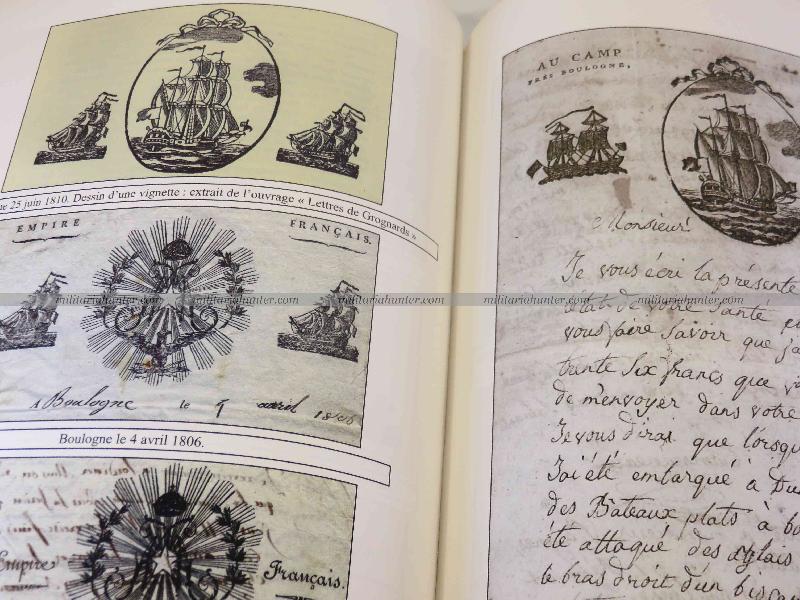 te 25 juin 1810. Dessin d'une vignette : extrait de l'ouvrage « Lettres de Grognards »
EMPIRE FRANÇAIS.
militariahunter.com militariahunter.com militariahunter.com militariahunter.com
A Boulogne le 4 avril 1806
Boulogne le 4 avril 1806.
Empire Français.
AU CAMP
PRÈS BOULOGNE,
Monsieur
Je vous écri la présente
état de votre santé
vous faire savoir que j'a
trante six francs que
de m'envoyer dans votre
Je vous diras que lorsqu
J'ai été embarqué à Du
des Bateaux plats à bo
été attaqué des anglais
le bras droit d'un bisca